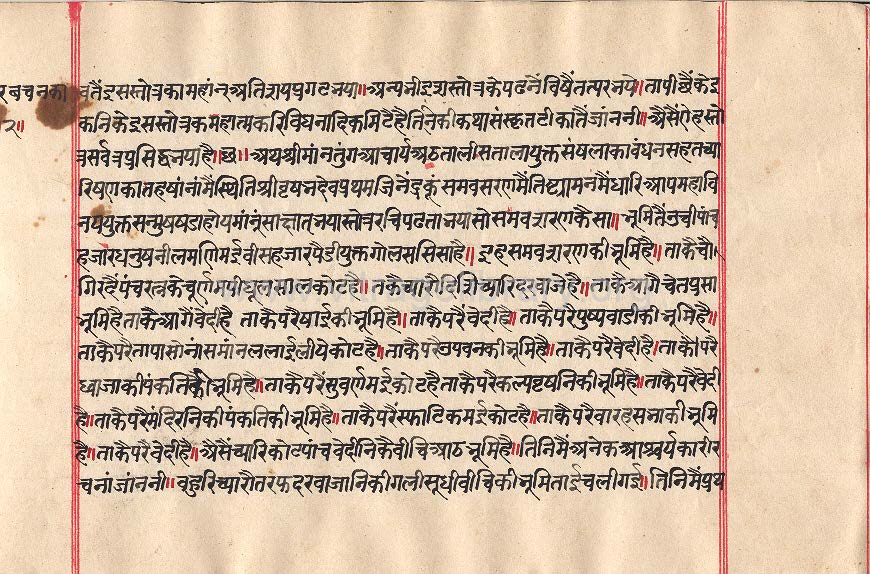 वतैंइसस्तोत्रकामहांन्अतिशयप्रगटभया॥अन्यभीइसस्तोत्रकेपढनेंविषैंतत्परभये॥तापीछैंकेइ
कनिकेइसस्तोत्रकमहात्मकरिविघनादिकमिटैहैतिनिकीकथासंस्कृतटीकातैंजांननी॥अैसैंएहस्तो
त्रसर्वत्रप्रसिद्धभयाहै॥छ॥॥अथश्रीमांनतुंगआचार्यअठतालीसतालायुक्तसंषलाकाबंधनसहतच्या
नययुक्तसन्मुषषडाहोयमांनूंसाक्षातभयास्तोत्ररचिपढताभयासोसमवशरणकैसा॥भूमितैंऊचीपांच
हजारधनुषनीलमणिमईवीसहजारपैडीयुक्तगोलससिसाहै॥इहसमवशरणकीभूमिहै॥ताकैचौ
गिरदैंपंचरत्नकेचूर्णमयीधूलसालकोटहै॥ताकैच्यारौंदिशिच्यारिदरवाजेहै॥ताकैआगैचेतप्रसा
भूमिहैताकैआगैंवेदीहै ताकैपरैषाईकीभूमिहै॥ताकैपरैंवेदीहै॥ताकैपरैपुष्पवाडीकीभूमिहै॥
ताकैपरैतापासोनांसमांनललाईलीयेकोटहै॥ताकैपरैउपवनकीभूमिहै॥ताकैपरैवेदीहै॥ताकैपरै
ध्वाजाकीपंकतिकीभूमिहै॥ताकैपरैंसुवर्णमईकोटहैताकैपरैकल्पवृष्यनिकीभूमिहै॥ताकैपरैवेदी
है॥ताकैपरैमंदिरनिकीपंकतिकीभूमिहै॥ताकैपरैंस्फाटिकमईकोटहै॥ताकैपरैवारहसभाकीभूमि
है॥ताकैपरैवेदीहै॥अैसैंच्यारिकोटपांचवेदीनिकैवीचिआठभूमिहै॥तिनिमैंअनेकआश्चर्यकारीर
चनांजांननी॥वहुरिच्यारौतरफदरवाजानिकीगलीसूधीवीचिकीभूमिताईचलीगई॥तिनिमैंप्रथ